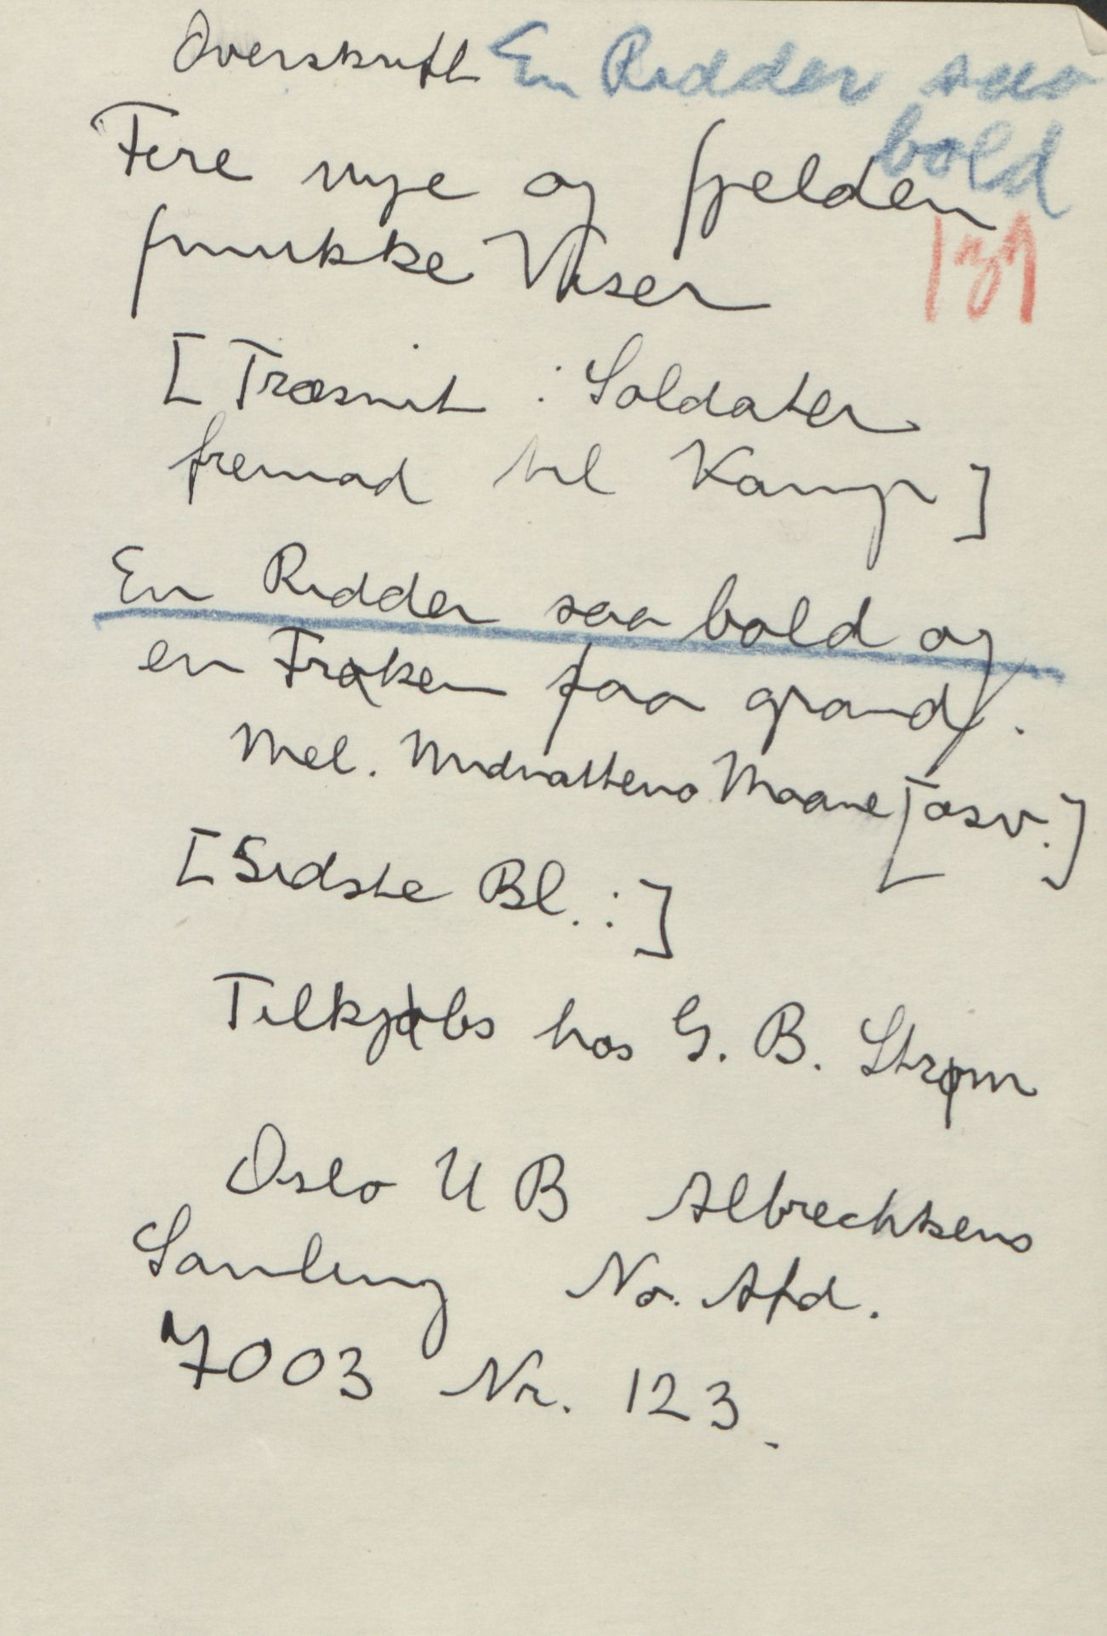 Overskrift En Ridder saa
bold
Fire nye og sjelden
smukke Viser
[Træsnit : Soldater
fremad til Kamp]
En Ridder saa bold og
en Frøken saa grand.
Mel. Midnattens Maane [osv.]
[Sidste Bl. :]
Tilkjøbs hos G. B. Strøm
Oslo UB Albrechtsens
Samling No. Afd.
7003 Nr. 123.